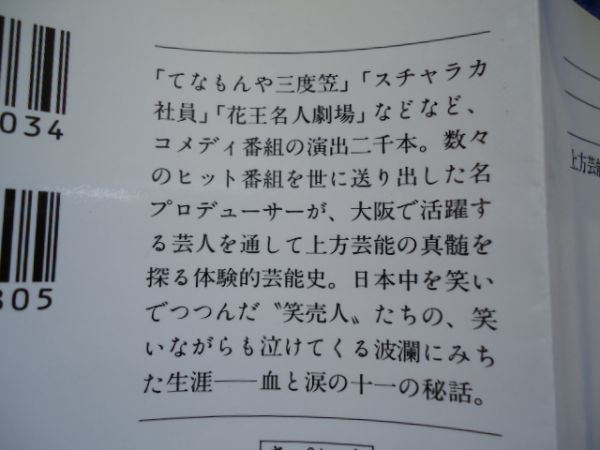 「てなもんや三度笠」「スチャラカ
社員」「花王名人劇場」などなど、
コメディ番組の演出二千本。数々
のヒット番組を世に送り出した名
プロデューサーが、大阪で活躍す
る芸人を通して上方芸能の真髄を
探る体験的芸能史。日本中を笑い
でつつんだ〝笑売人〟たちの、笑
いながらも泣けてくる波瀾にみち
た生涯――血と涙の十一の秘話。
034
305
上方芸能